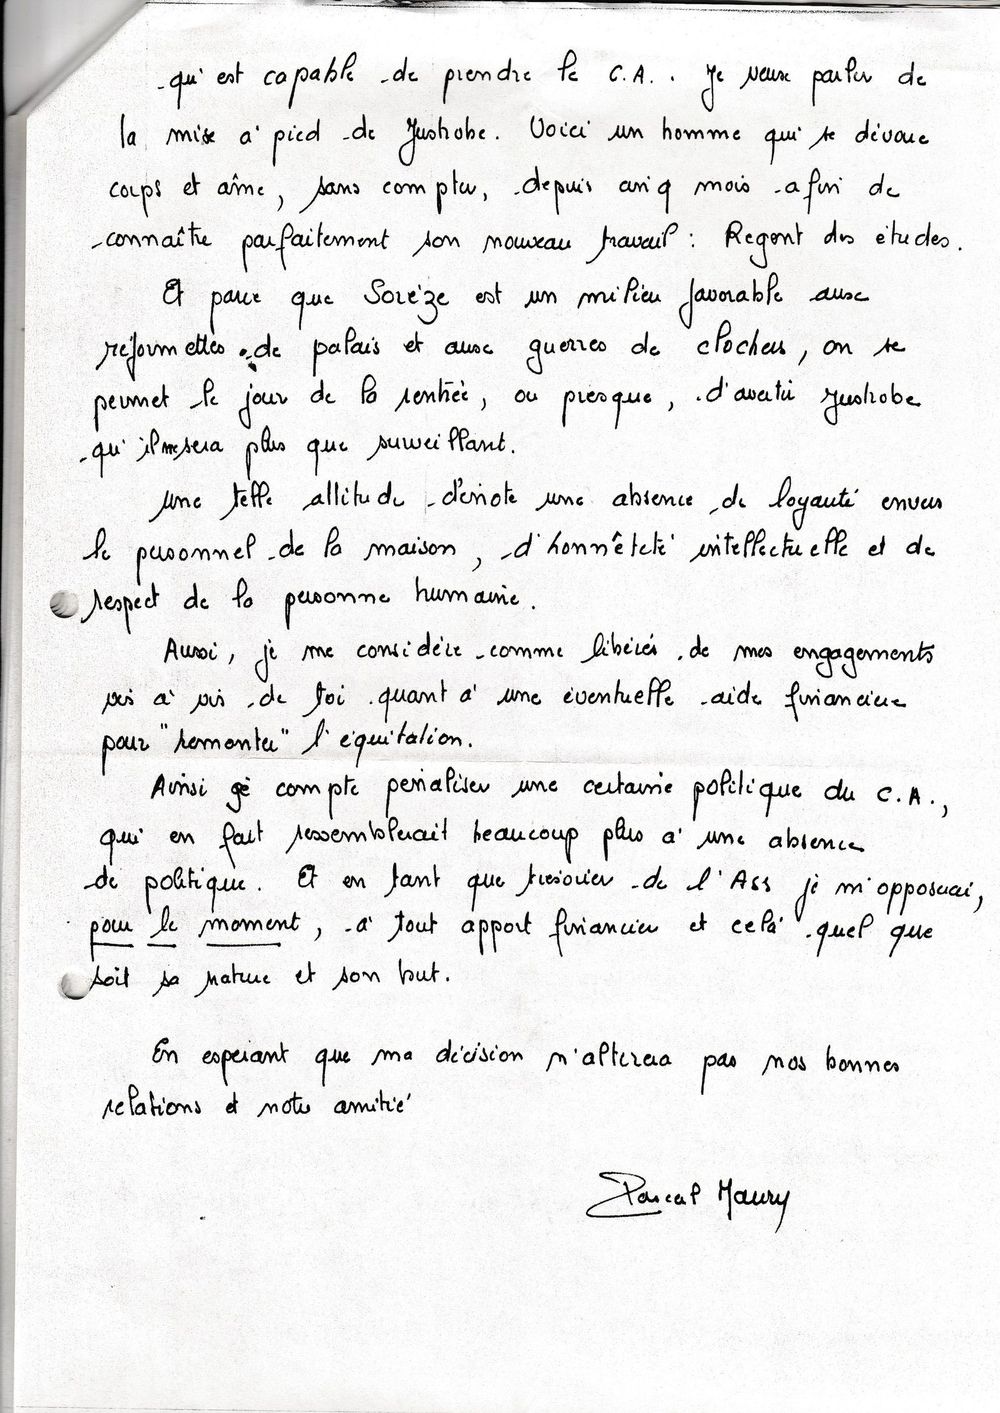 qui est capable de prendre le C.A.. Je veux parler de
la mise a' pied de Juskobe. Voici un homme qui se dévoue
corps et âme, sans compter, depuis cinq mois afin de
connaître parfaitement son nouveau travail : Regent des études.
Et parce que Sorèze est un milieu favorable aux
reformettes de palais et aux guerres de clochers, on se
permet le jour de la rentrée, ou presque, d'avertir Juskobe
qu'il ne sera plus que surveillant.
Une telle attitude dénote une absence de loyauté envers
le personnel de la maison, d'honnêteté intellectuelle et de
respect de la personne humaine.
Aussi, je me considère comme libérés de mes engagements
vis à vis de toi quant à une éventuelle aide financière
pour "remonter" l'équitation.
Ainsi je compte penaliser une certaine politique du C.A.,
qui en fait ressemblerait beaucoup plus à une absence
de politique. Et en tant que tresorier de l'Ass je m'opposerai,
pour le moment, à tout apport financier et celà quel que
soit sa nature et son but.
En esperant que ma décision n'altèrera pas nos bonnes
relations et notre amitié
Pascal Maury